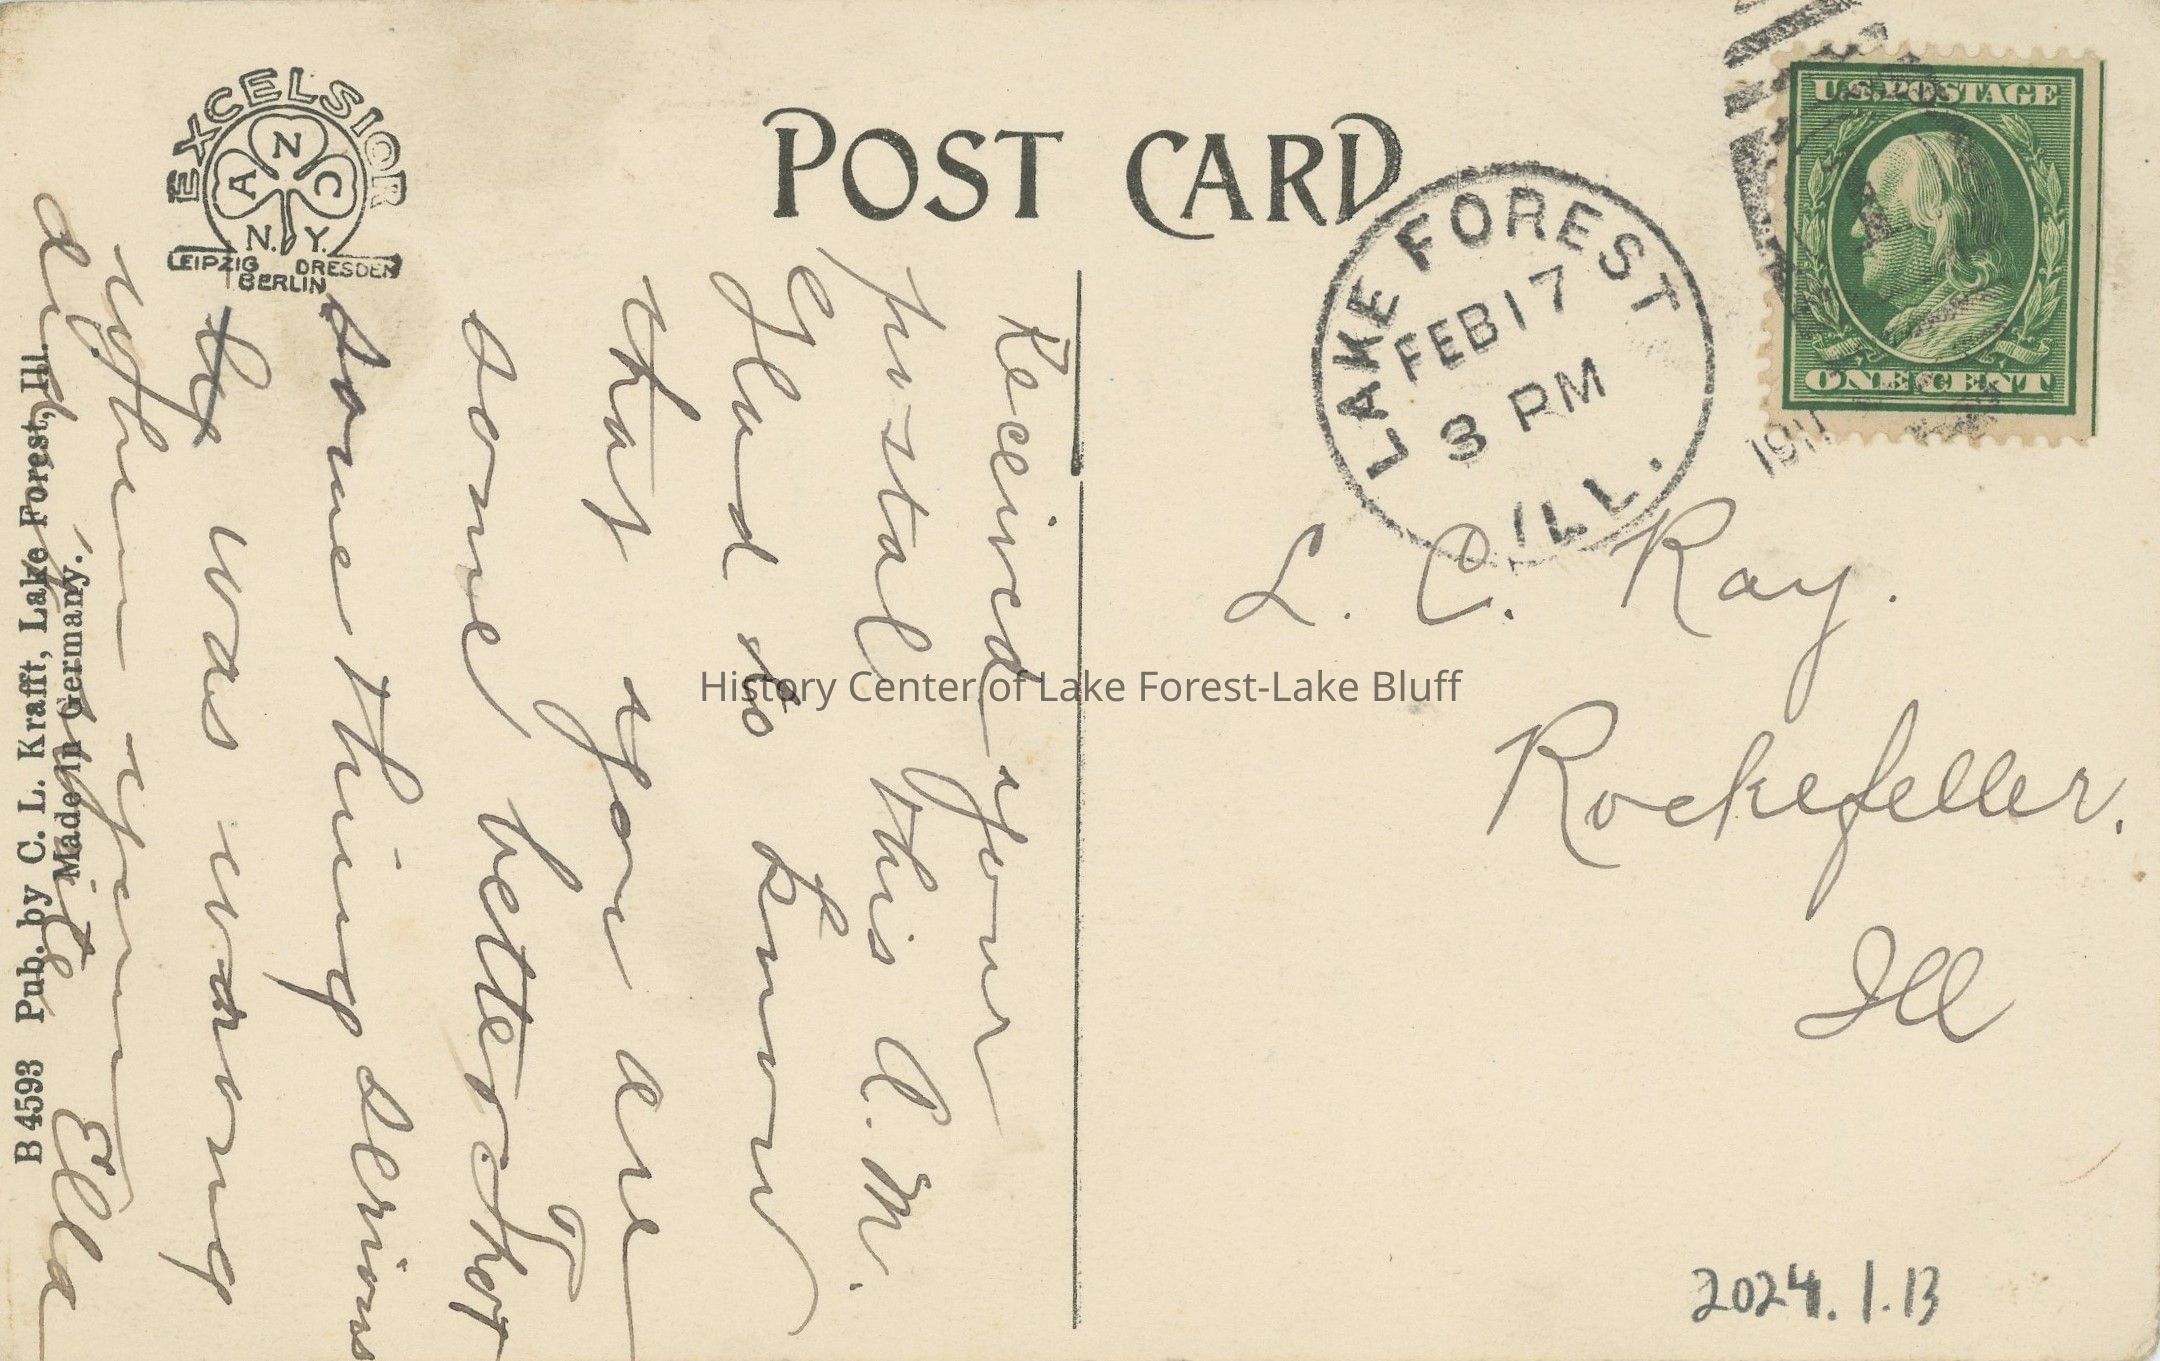 EXCELSIOR
A N C
N. Y.
LEIPZIG DRESDEN
BERLIN
POST CARD
LAKE FOREST
FEB 17
3 PM
ILL.
1911
U.S. POSTAGE
ONE CENT
Received your
postal this A.M.
Glad to know
that you are
some better I thot
some thing serious
was wrong
when you
didn't write Ella
L. C. Ray.
Rockefeller.
Ill
B 4593 Pub. by C. L. Krafft, Lake Forest, Ill.
Made in Germany.
History Center of Lake Forest-Lake Bluff
2024.1.13